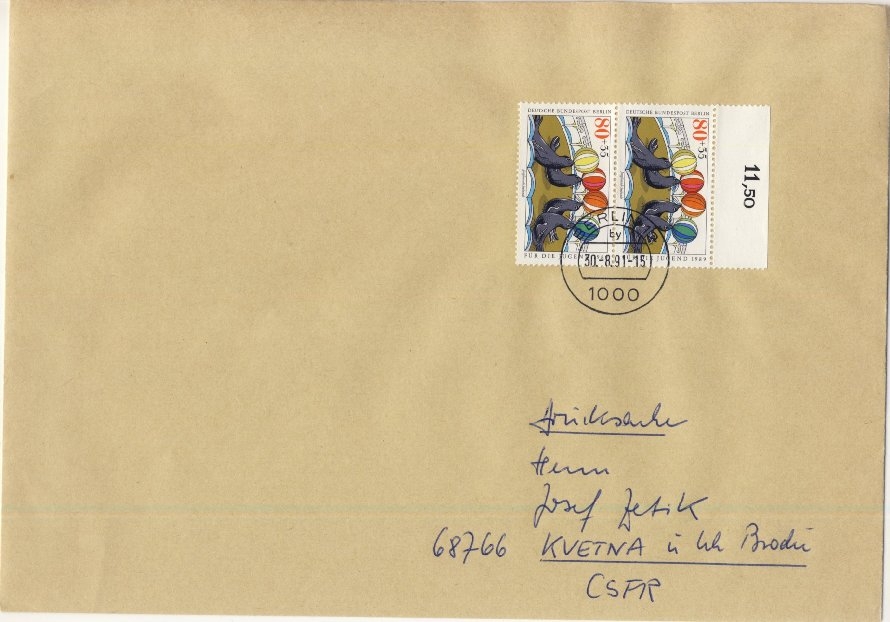 DEUTSCHE BUNDESPOST BERLIN
80+35
DEUTSCHE BUNDESPOST BERLIN
80+35
11,50
BERLIN
by
30.-8.91-15
1000
FÜR DIE JUGEND
JUGEND 1989
Drucksache
Herrn
Josef
68766 KVETNA u Uh Brodu
CSFR